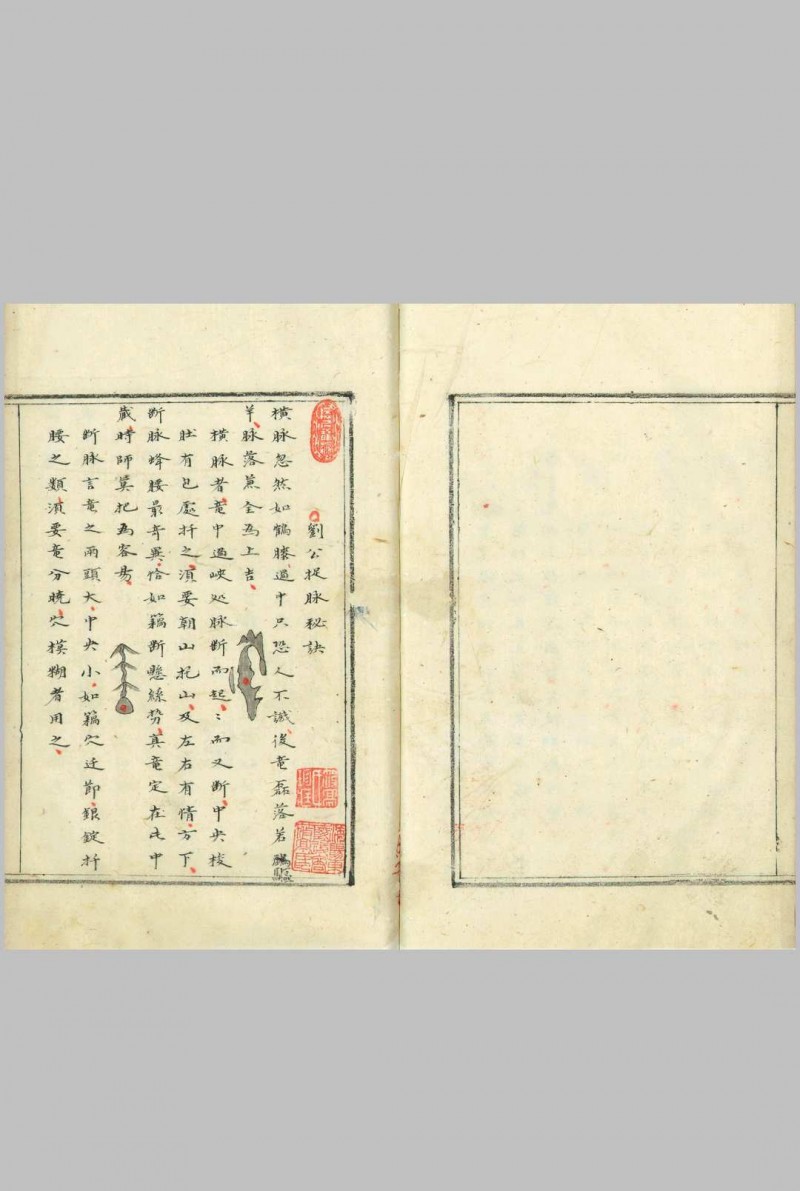 劉公捉脉秘訣
橫脉忽然如鶴膝過中只恐人不識後竜磊落若驅
羊脉落蕉全爲上吉
橫脉者竜中過峽処脉断而起〻而又断中央棱
肚有包處扦之須要朝山托山及左右有情方下
断脉蜂腰最奇異恰如藕断懸絲勢真竜定在此中
蔵時師莫把為容易
断脉言竜之兩頭大中央小如藕穴迁節銀錠扦
腰之類須要竜分曉穴模糊者用之